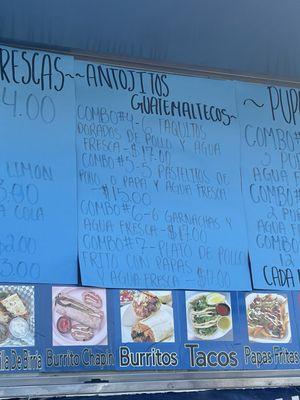 RESCAS~
4.00
LIMON
3.00
A COLA
2.00
3.00
~ANTOJITOS
GUATEMALTECOS~
COMBO#4-6 TAQUITOS
DORADOS DE POLLO Y AGUA
FRESCA -$17.00
COMBO#5-5 PASTELITOS DE
POLLO O PAPA Y AGUA FRESCA
-$15.00
COMBO#6-6 GARNACHAS Y
AGUA FRESCA -$17.00
COMBO#7-PLATO DE POLLO
FRITO CON PAPAS
Y AGUA FRESCA $17.00
~PUP
COMBO#
3 PU
AGUA
FRESCA
COMBO#
2 PU
AGUA
COMBO
12
CADA
la De Birria
Burrito Chapin
Burritos
Tacos
Papas Fritas